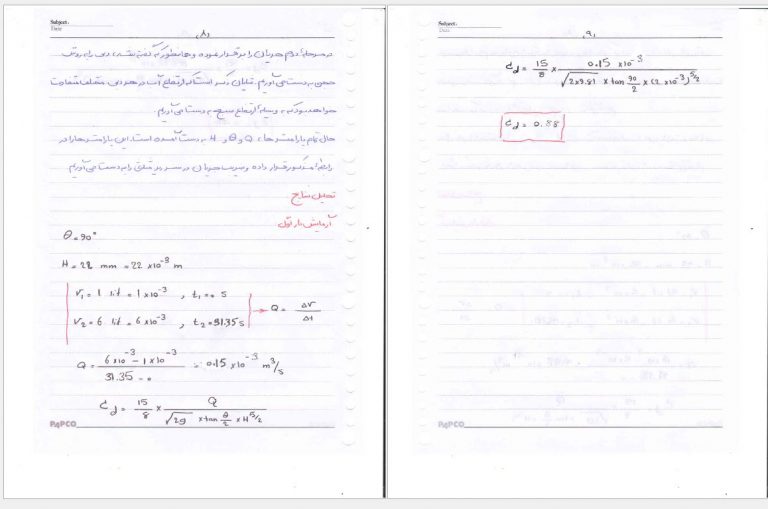 Subject.
Date
(۸)
در مرحله دوم جریان را برقرار نموده و همانطور که گفته شد، دبی را به روش
حجمی به دست می‌آوریم.
خواهد بود که به وسیله ارتفاع سنج به دست می‌آوریم
حال تمام پارامترها، Q و θ و H به دست آمده است. این پارامترها را در
رابطه قرار داده و ضریب جریان در را به دست می‌آوریم
تحلیل نتایج
آزمایش بار اول
θ = 90°
H = 22 mm = 22 ×10⁻³ m
V₁ = 1 lit = 1 ×10⁻³ , t₁ = 0 s
V₂ = 6 lit = 6 ×10⁻³ , t₂ = 31.35 s → Q = ΔV / Δt
Q = (6×10⁻³ − 1×10⁻³) / (31.35 − 0) = 0.15 ×10⁻³ m³/s
Cd = 15/8 × Q / (√2g × tan θ/2 × H^5/2)
PAPCO
Subject.
Date
(۹)
Cd = 15/8 × 0.15 ×10⁻³ / (√2×9.81 × tan 90/2 × (2 ×10⁻³)^5/2)
Cd = 0.88
PAPCO